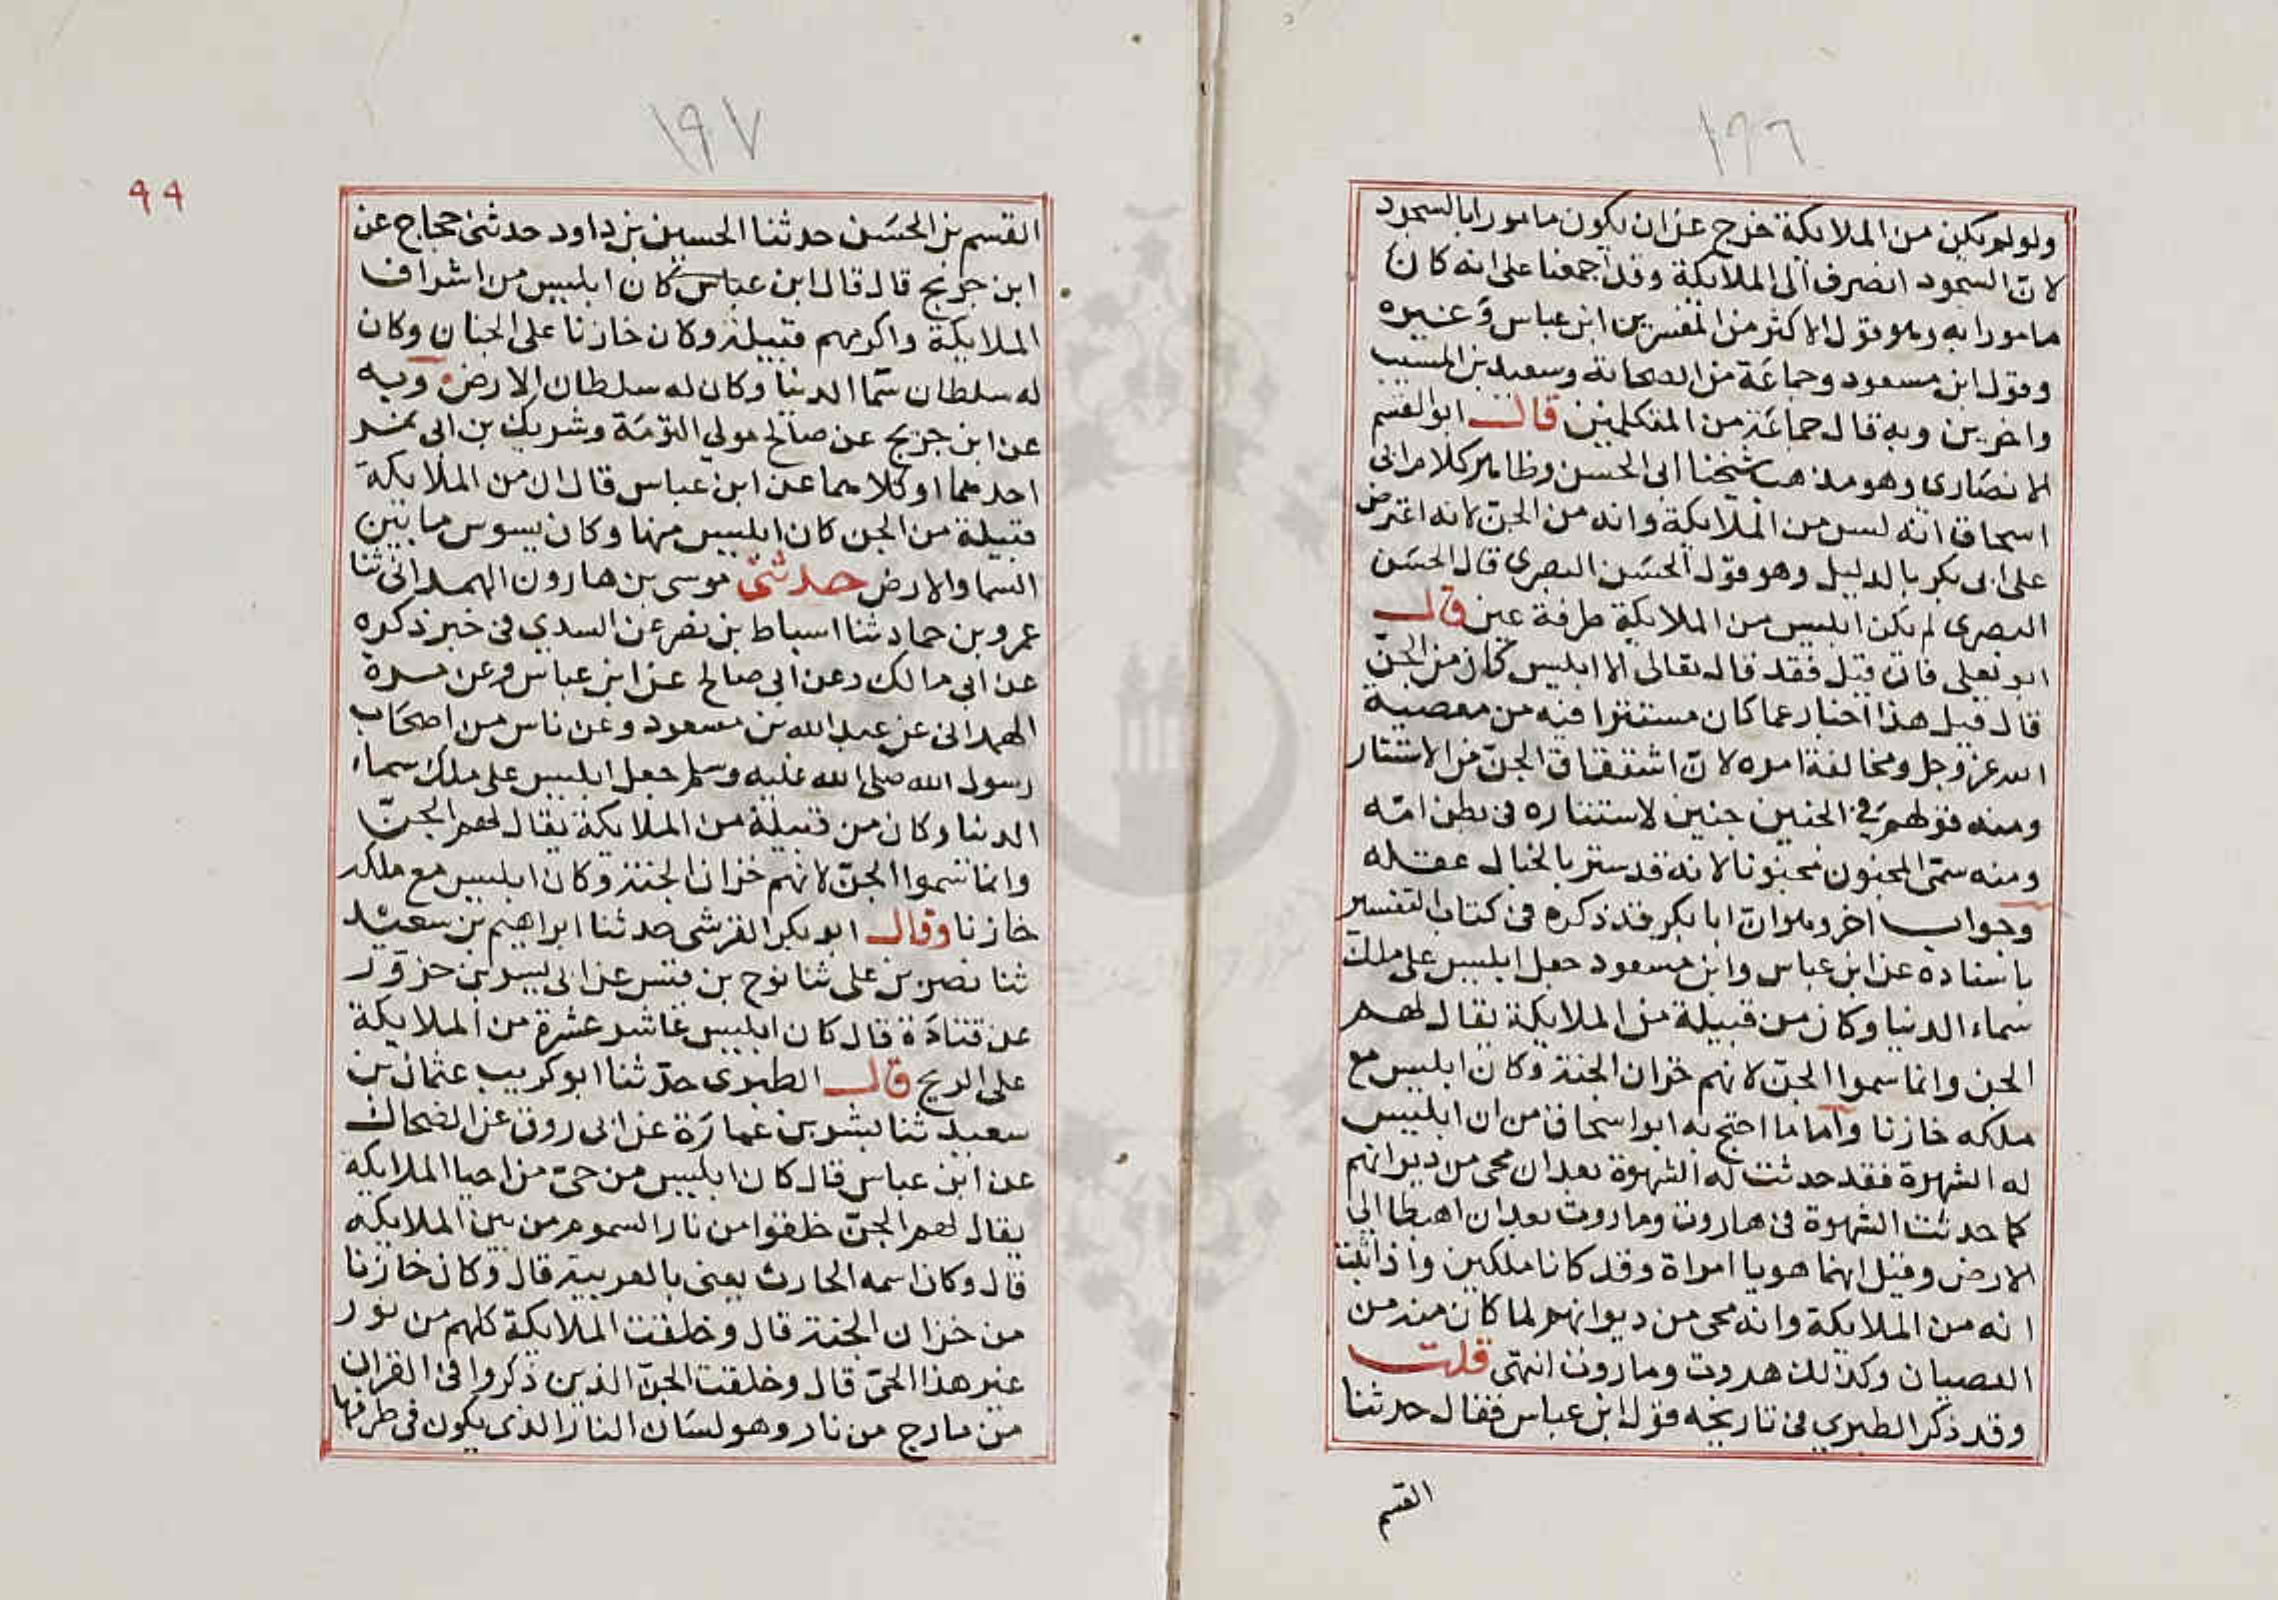 ١٩٦
ولو لم يكن من الملايكة خرج عن ان يكون مامورا بالسجود
لانّ السجود انصرف الى الملايكة وقد اجمعنا على انه كان
مامورا به وهو قول الاكثر من المفسرين ابن عباس وغيره
وقول ابن مسعود وجماعة من الصحابة وسعيد بن المسيب
واخرين وبه قال جماعة من المتكلمين قال ابو القسم
الانصارى وهو مذهب شيخنا ابى الحسن وظاهر كلام ابى
اسحاق انه ليس من الملايكة وانه من الجن لانه اعترض
على ابى بكر بالدليل وهو قول الحسن البصرى قال الحسن
البصرى لم يكن ابليس من الملايكة طرفة عين قال
ابو يعلى فان قيل فقد قال تعالى الا ابليس كان من الجنّ
قال قيل هذا اخبار عما كان مستترا فيه من معصية
الله عز وجل ومخالفة امره لانّ اشتقاق الجنّ من الاستتار
ومنه قولهم فى الجنين جنين لاستتاره فى بطن امّه
ومنه سمّى المجنون مجنونا لانه قد ستر بالخبال عقله
وجواب اخر وهو انّ ابا بكر قد ذكره فى كتاب التفسير
باسناده عن ابن عباس وابن مسعود جعل ابليس على ملك
سماء الدنيا وكان من قبيلة من الملايكة يقال لهم
الجن وانما سموا الجنّ لانهم خزان الجنة وكان ابليس مع
ملكه خازنا وأما ما احتج به ابو اسحاق من ان ابليس
له الشهوة فقد حدثت له الشهوة بعد ان محى من ديوانهم
كما حدثت الشهوة فى هاروت وماروت بعد ان اهبطا الى
الارض وقيل انهما هويا امراة وقد كانا ملكين واذا ثبت
انه من الملايكة وانه محى من ديوانهم لما كان منه من
العصيان وكذلك هروت وماروت انتهى قلت
وقد ذكر الطبري فى تاريخه قول ابن عباس فقال حدثنا
القسم
١٩٧
٩٩
القسم بن الحسَن حدثنا الحسين بن داود حدثنى حجاج عن
ابن جريج قال قال ابن عباس كان ابليس من اشراف
الملايكة واكرمهم قبيلة وكان خازنا على الجنان وكان
له سلطان سمّا الدنيا وكان له سلطان الارض وبه
عن ابن جريج عن صالح مولى التومَة وشريك بن ابى نمر
احدهما او كلاهما عن ابن عباس قال ان من الملايكة
قبيلة من الجن كان ابليس منها وكان يسوس ما بين
السما والارض حدثنى موسى بن هارون الهمدانى ثنا
عمرو بن حماد ثنا اسباط بن نصر عن السدي فى خبر ذكره
عن ابى مالك وعن ابى صالح عن ابن عباس وعن مرة
الهمدانى عن عبد الله بن مسعود وعن ناس من اصحَاب
رسول الله صلى الله عليه وسلم جعل ابليس على ملك سماء
الدنيا وكان من قبيلة من الملايكة يقال لهم الجنّ
وانما سموا الجنّ لانهم خزان الجنة وكان ابليس مع ملكه
خازنا وقال ابو بكر القرشى حدثنا ابراهيم بن سعيد
ثنا نصر بن على ثنا نوح بن قيس عن ابى بسر بن حزور
عن قتادَة قال كان ابليس عاشر عشرة من الملايكة
على الريح قال الطبرى حدّثنا ابو كريب عثمان بن
سعيد ثنا بشر بن عمارَة عن ابى روق عن الضحاك
عن ابن عباس قال كان ابليس من حىّ من احيا الملايكة
يقال لهم الجنّ خلقوا من نار السموم من بين الملايكه
قال وكان اسمه الحارث يعنى بالعربية قال وكان خازنا
من خزان الجنة قال وخلقت الملايكة كلهم من نور
غير هذا الحىّ قال وخلقت الجنّ الذين ذكروا فى القران
من مارج من نار وهو لسَان النار الذى يكون فى طرفها